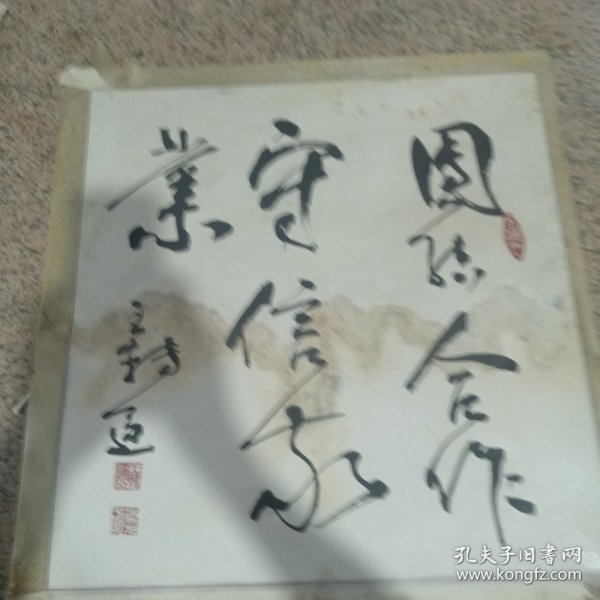 團结合作
守信敬
業
孔夫子旧书网
www.kongfz.com